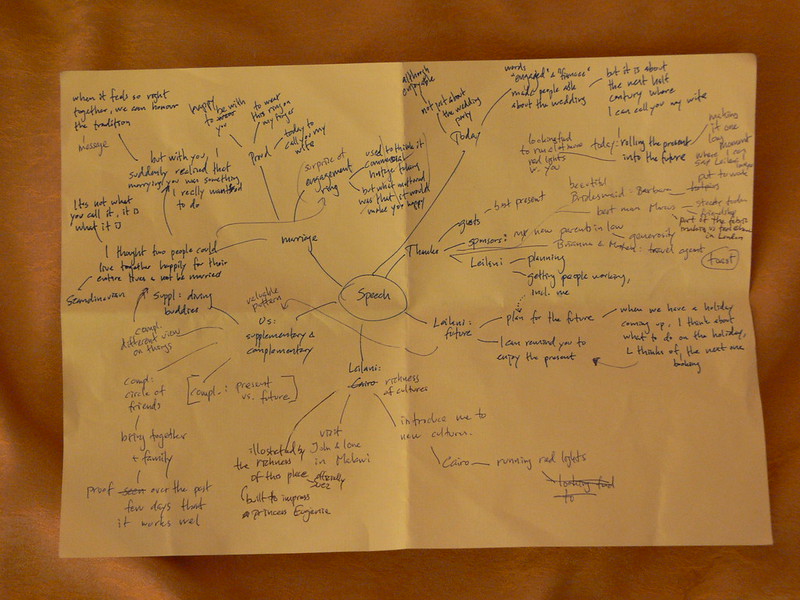 when it feels so right
together, we can honour
the tradition
message
but with you, I
suddenly realised that
marrying you was something
I really wanted
to do
It's not what
you call it, it is
what it is
I thought two people could
love together happily for their
entire lives & not be married
Scandinavian
happy
to
be with
you
to wear
this ring on
my finger
Proud
today to
call you my
wife
surprise of
engagement
ring
used to think it
commercial
but what mattered
was that it would
make you happy
marriage
although
enjoyable
not just about
the wedding
party
Today
words
"engaged" & "fiancee"
made people ask
about the wedding
but it is about
the next half
century where
I can call you my wife
looking fwd
to run all at once
red lights
w. you
today: rolling the present
into the future
making
it one
long
moment
where I can
say Leilani &
Thanks
guests
best present
beautiful
Bridesmaid: Barbara
put to work
best man: Marcus
steady
friendship
part of the fabric
in London
sponsors: my new parents in law
generosity
travel agent
toast
Leilani
planning
getting people working,
incl. me
Speech
Leilani:
future
plan for the future
when we have a holiday
coming up, I think about
what to do on the holiday,
L thinks of the next one
booking
I can remind you to
enjoy the present
valuable
pattern
Us:
supplementary &
complementary
Suppl: diving
buddies
compl.
different view
on things
compl:
circle of
friends
[compl.: present
vs. future]
bring together
+ family
proof seen over the past
few days that
it works well
Leilani:
Cairo richness
of cultures
illustrated by
the richness
of this place
built to impress
princess Eugenie
visit
John & Lone
in Malawi
introduce me to
new cultures.
Cairo
running red lights
looking fwd
to